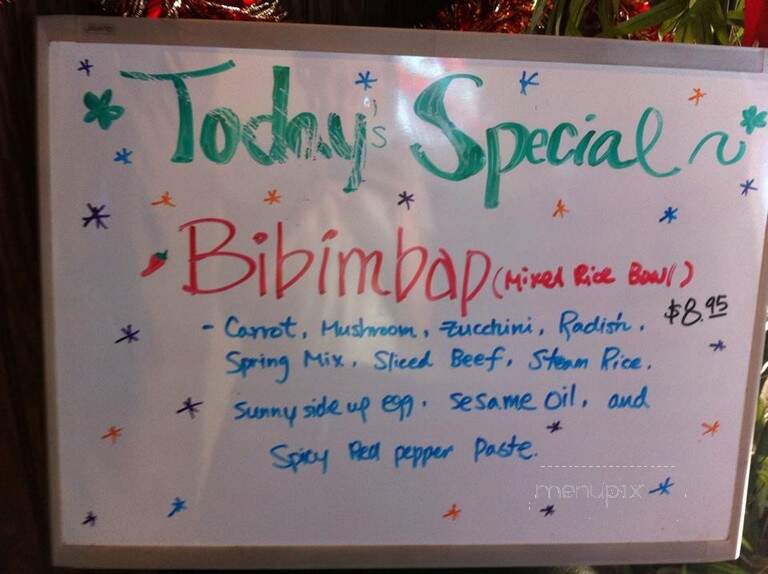 Today's Special ~
Bibimbap (Mixed Rice Bowl)
$8.95
- Carrot, Mushroom, Zucchini, Radish,
Spring Mix, Sliced Beef, Steam Rice,
Sunny side up egg, Sesame Oil, and
Spicy Red pepper Paste.
menupix